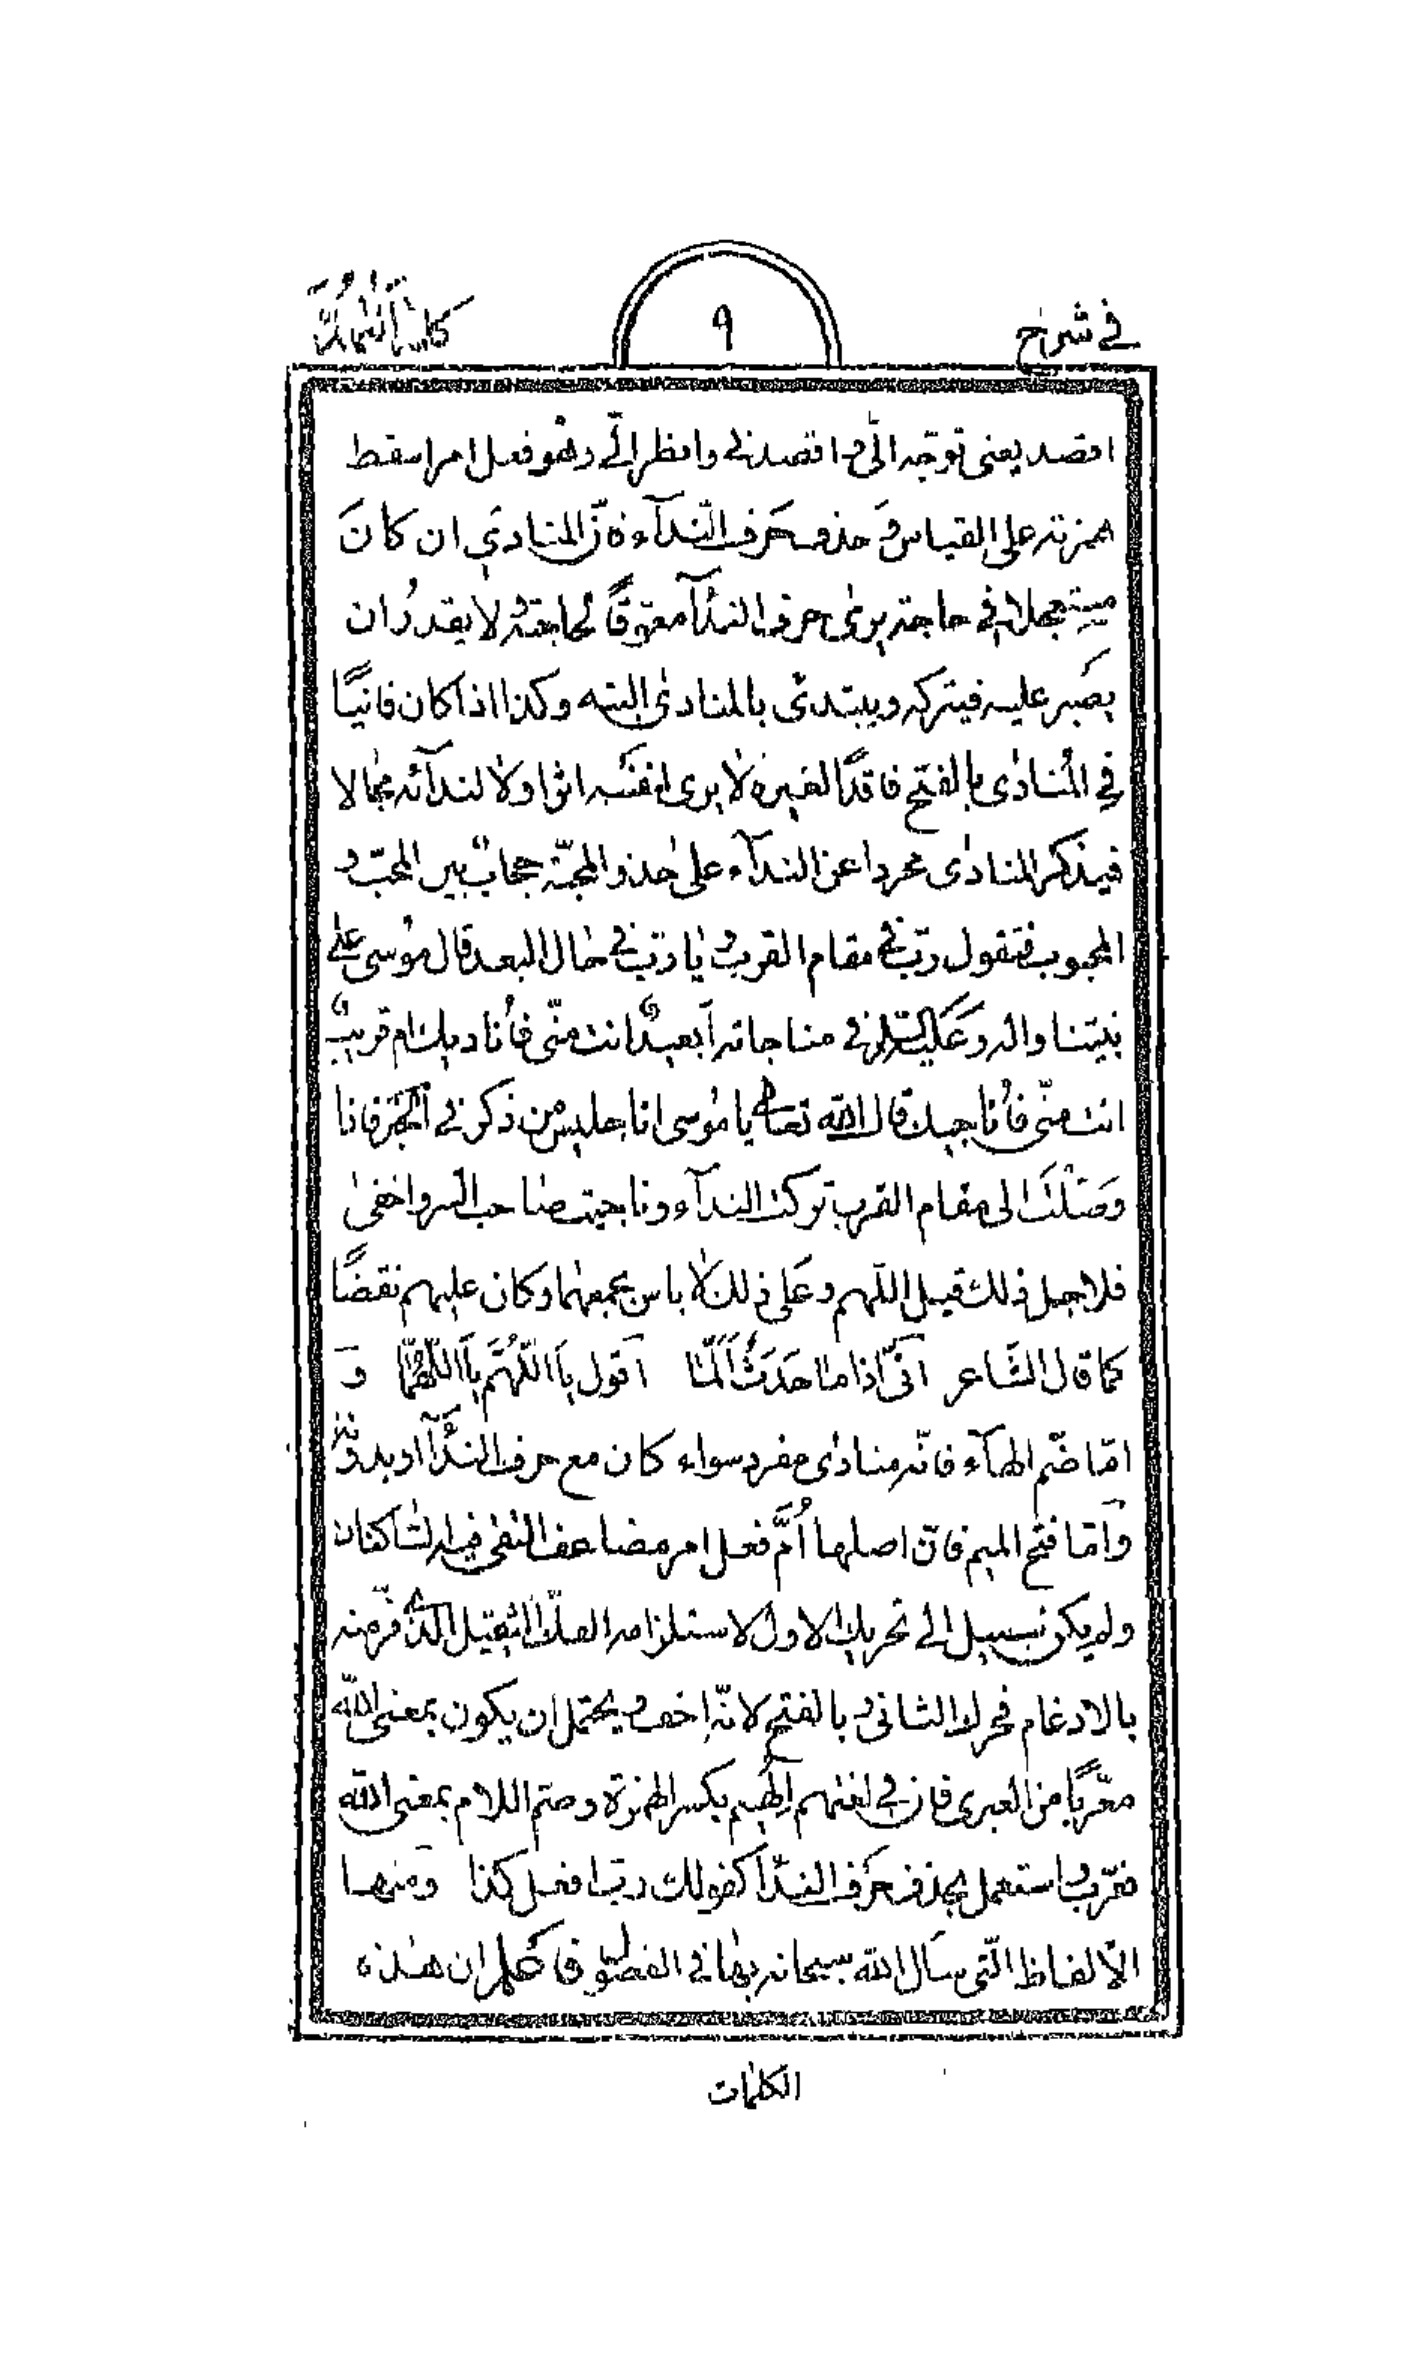 في شرح
٩
كلمة اللهم
اقصد يعني توجّه الىّ و اقصدني وانظر الىّ وهو فعل امر اسقط
همزته على القياس وَ حذف حَرف النّدآء فانّ المنادي ان كانَ
مستعجلا في حاجته يرىٰ حرف الندآ معوّقاً لحاجته و لا يقدرُ ان
يصَبر عليه فيتركه ويبتدئ بالمنادىٰ البته وكذا اذا كان فانيًا
في المُنادٰى بالفتح فاقدًا لغيره لا يرى لنفسَه اثرا ولا لندآئه مجالا
فيذكر المنادٰى مجردا عن الندآء على حذو المحبّة حجابٌ بين المحبّ و
المحبوب فتقول ربّ في مقام القرب و يا ربّ في حال البعد قال موسٰى على
نبيّنا واله وعَليه السّلام في مناجاته اَبعيدٌ انت منّي فأناديك ام قريبٌ
انت منّي فأناجيك قال الله تعالى يا موسٰى انا جليس من ذكرني فاذا
وَصَلتَ الى مقام القرب تركت الندآء وناجيت صاحب السر واخفىٰ
فلاجل ذلك قيل اللّهم وعَلى ذلك لا باس بجمعهما وكان عليهم نقضًا
كما قال الشّاعر انّى اذا ما حَدَثٌ اَلَمّا اَقول يا اللّهُمَّ يا اللّهُمّا وَ
امّا ضّم الهآء فانّه منادٰى مفرد سواء كان مع حرف الندآ او بدونه
وَامّا فتح الميم فانّ اصلها اُمَّ فعل امر مضاعف التقى فيه السّاكنان
ولم يكن سبيل الى تحريك الاول لاستلزامه الثقيل الذّي فرّ منه
بالادغام فحرك الثانى و بالفتح لانّه اخف و يحتمل ان يكون بمعنى اللّه
معرّبًا من العبرى فان في لغتهم الهيم بكسر الهمزة وضم اللام بمعنى اللّه
فعرّب و استعمل بحذف حَرف الندآ كقولك ربّ افعل كذا وَمنها
الالفاظ الّتي سَال الله سبحانه بها في فاعلم ان هٰذه
الكلمات